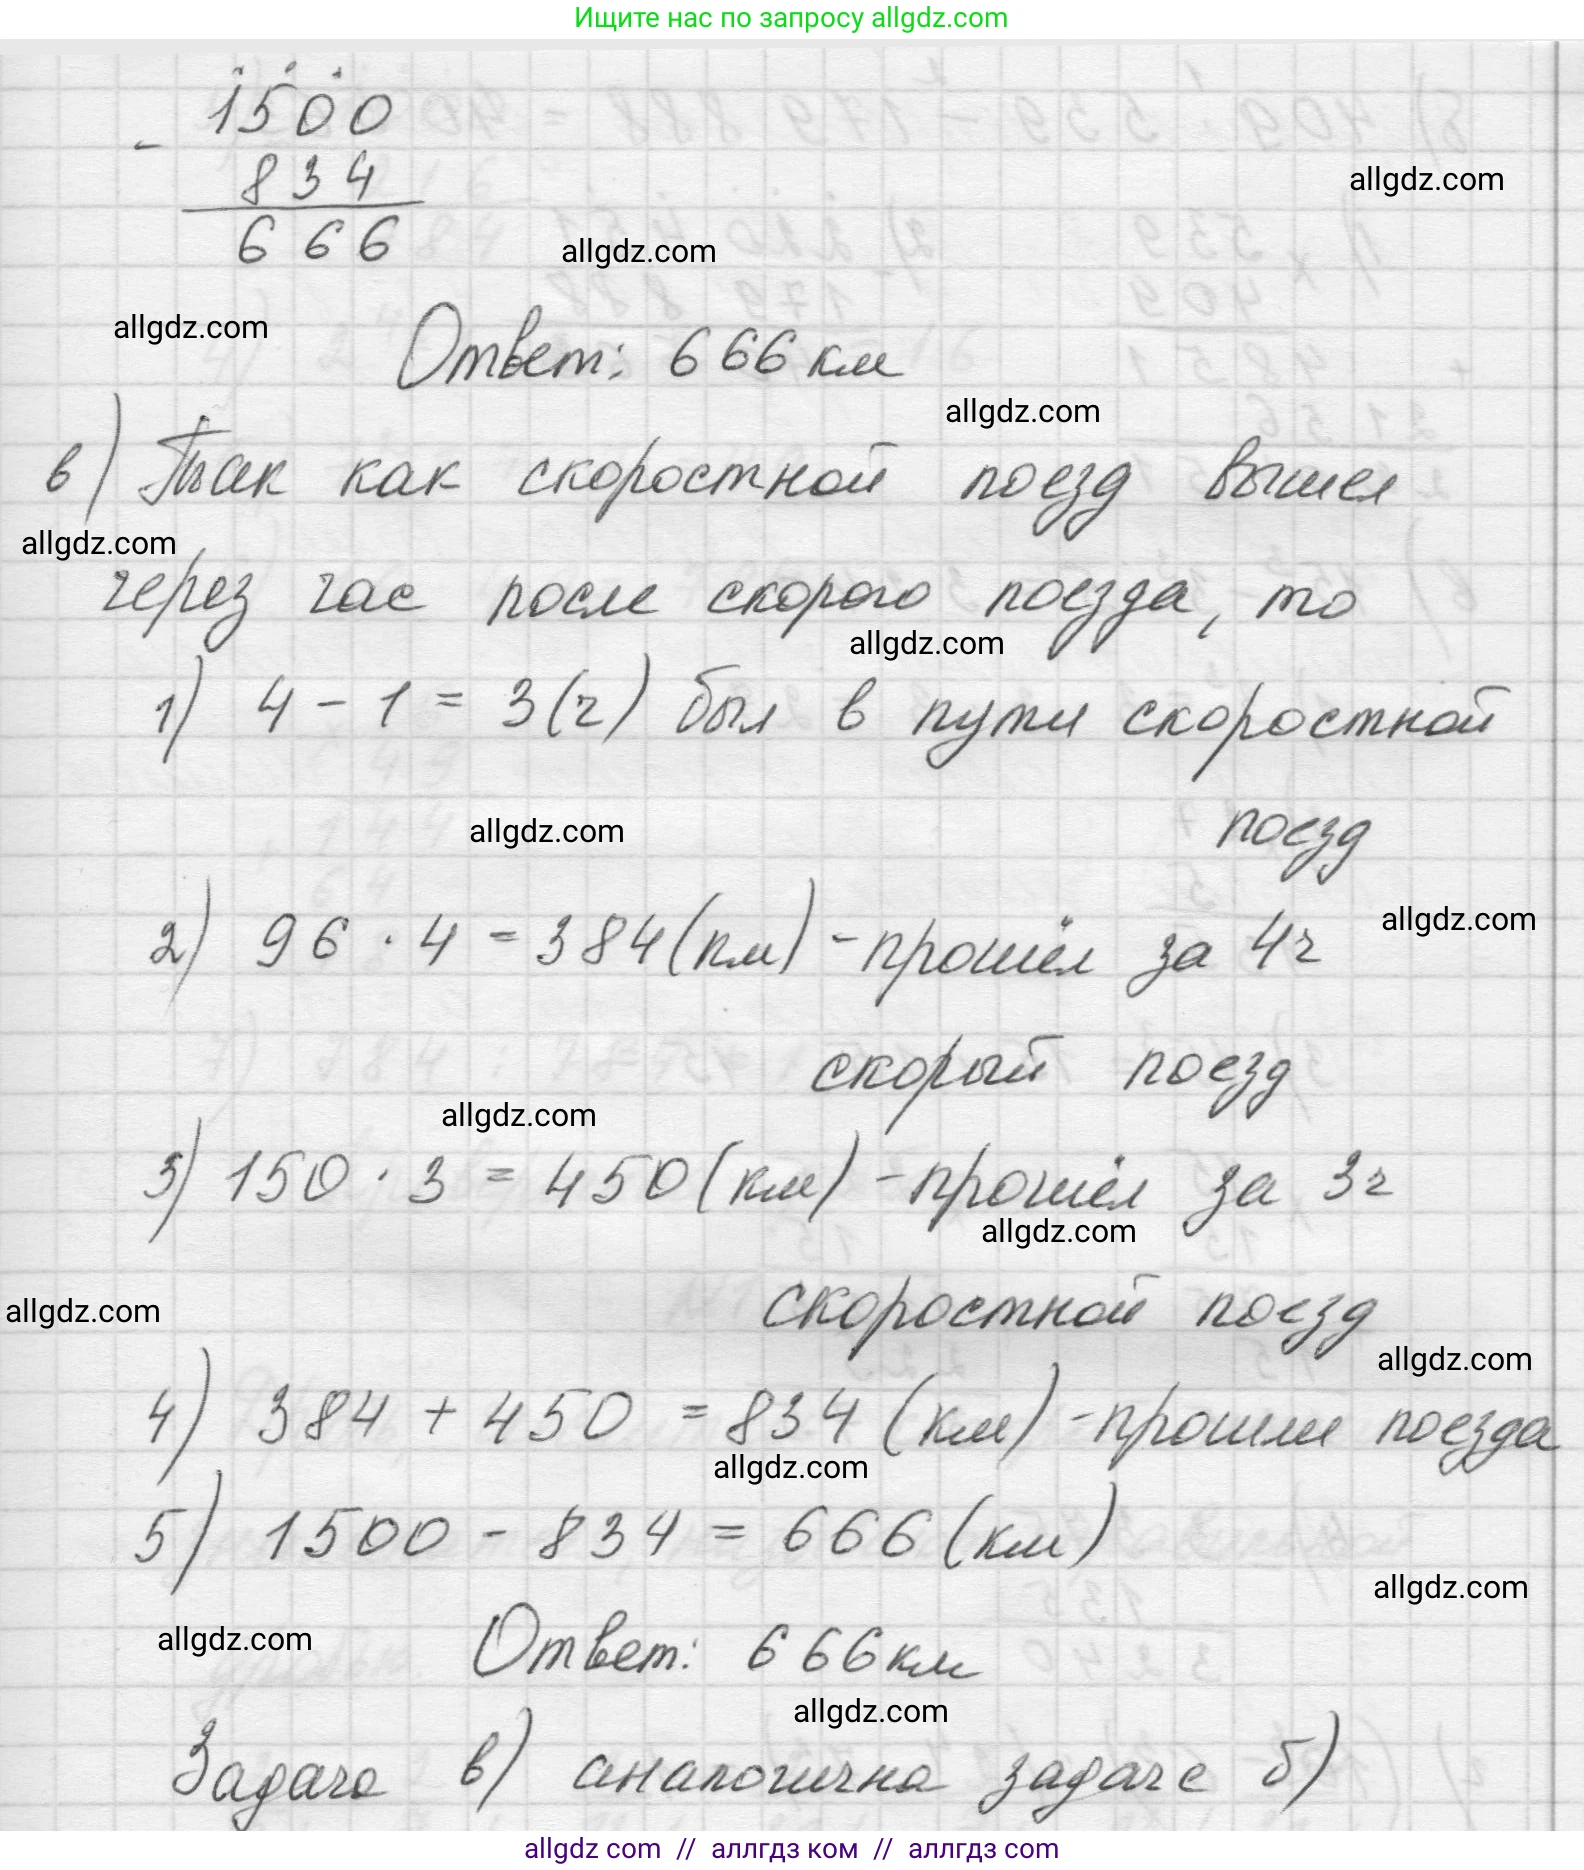 Ищите нас по запросу allgdz.com
1500
- 834
allgdz.com
666
allgdz.com
allgdz.com
Ответ: 666 км
allgdz.com
в) Так как скоростной поезд вышел
allgdz.com
через час после скорого поезда, то
allgdz.com
1) 4 - 1 = 3 (ч) был в пути скоростной
поезд
allgdz.com
2) 96 · 4 = 384 (км) - прошёл за 4ч
allgdz.com
скорый поезд
allgdz.com
3) 150 · 3 = 450 (км) - прошёл за 3ч
allgdz.com
скоростной поезд
allgdz.com
allgdz.com
4) 384 + 450 = 834 (км) - прошли поезда
allgdz.com
5) 1500 - 834 = 666 (км)
allgdz.com
Ответ: 666 км
allgdz.com
allgdz.com
Задача в) аналогична задаче б)
allgdz com // аллгдз ком // аллгдз com